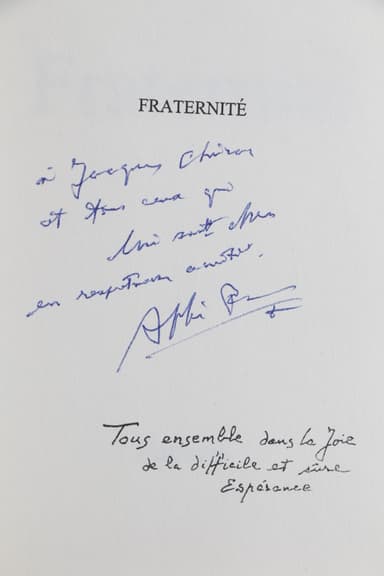 FRATERNITÉ
à Jacques
et tous ceux qui
lui sont chers
en respectueuse amitié.
Abbé
Tous ensemble dans la Joie
de la difficile et sûre
Espérance